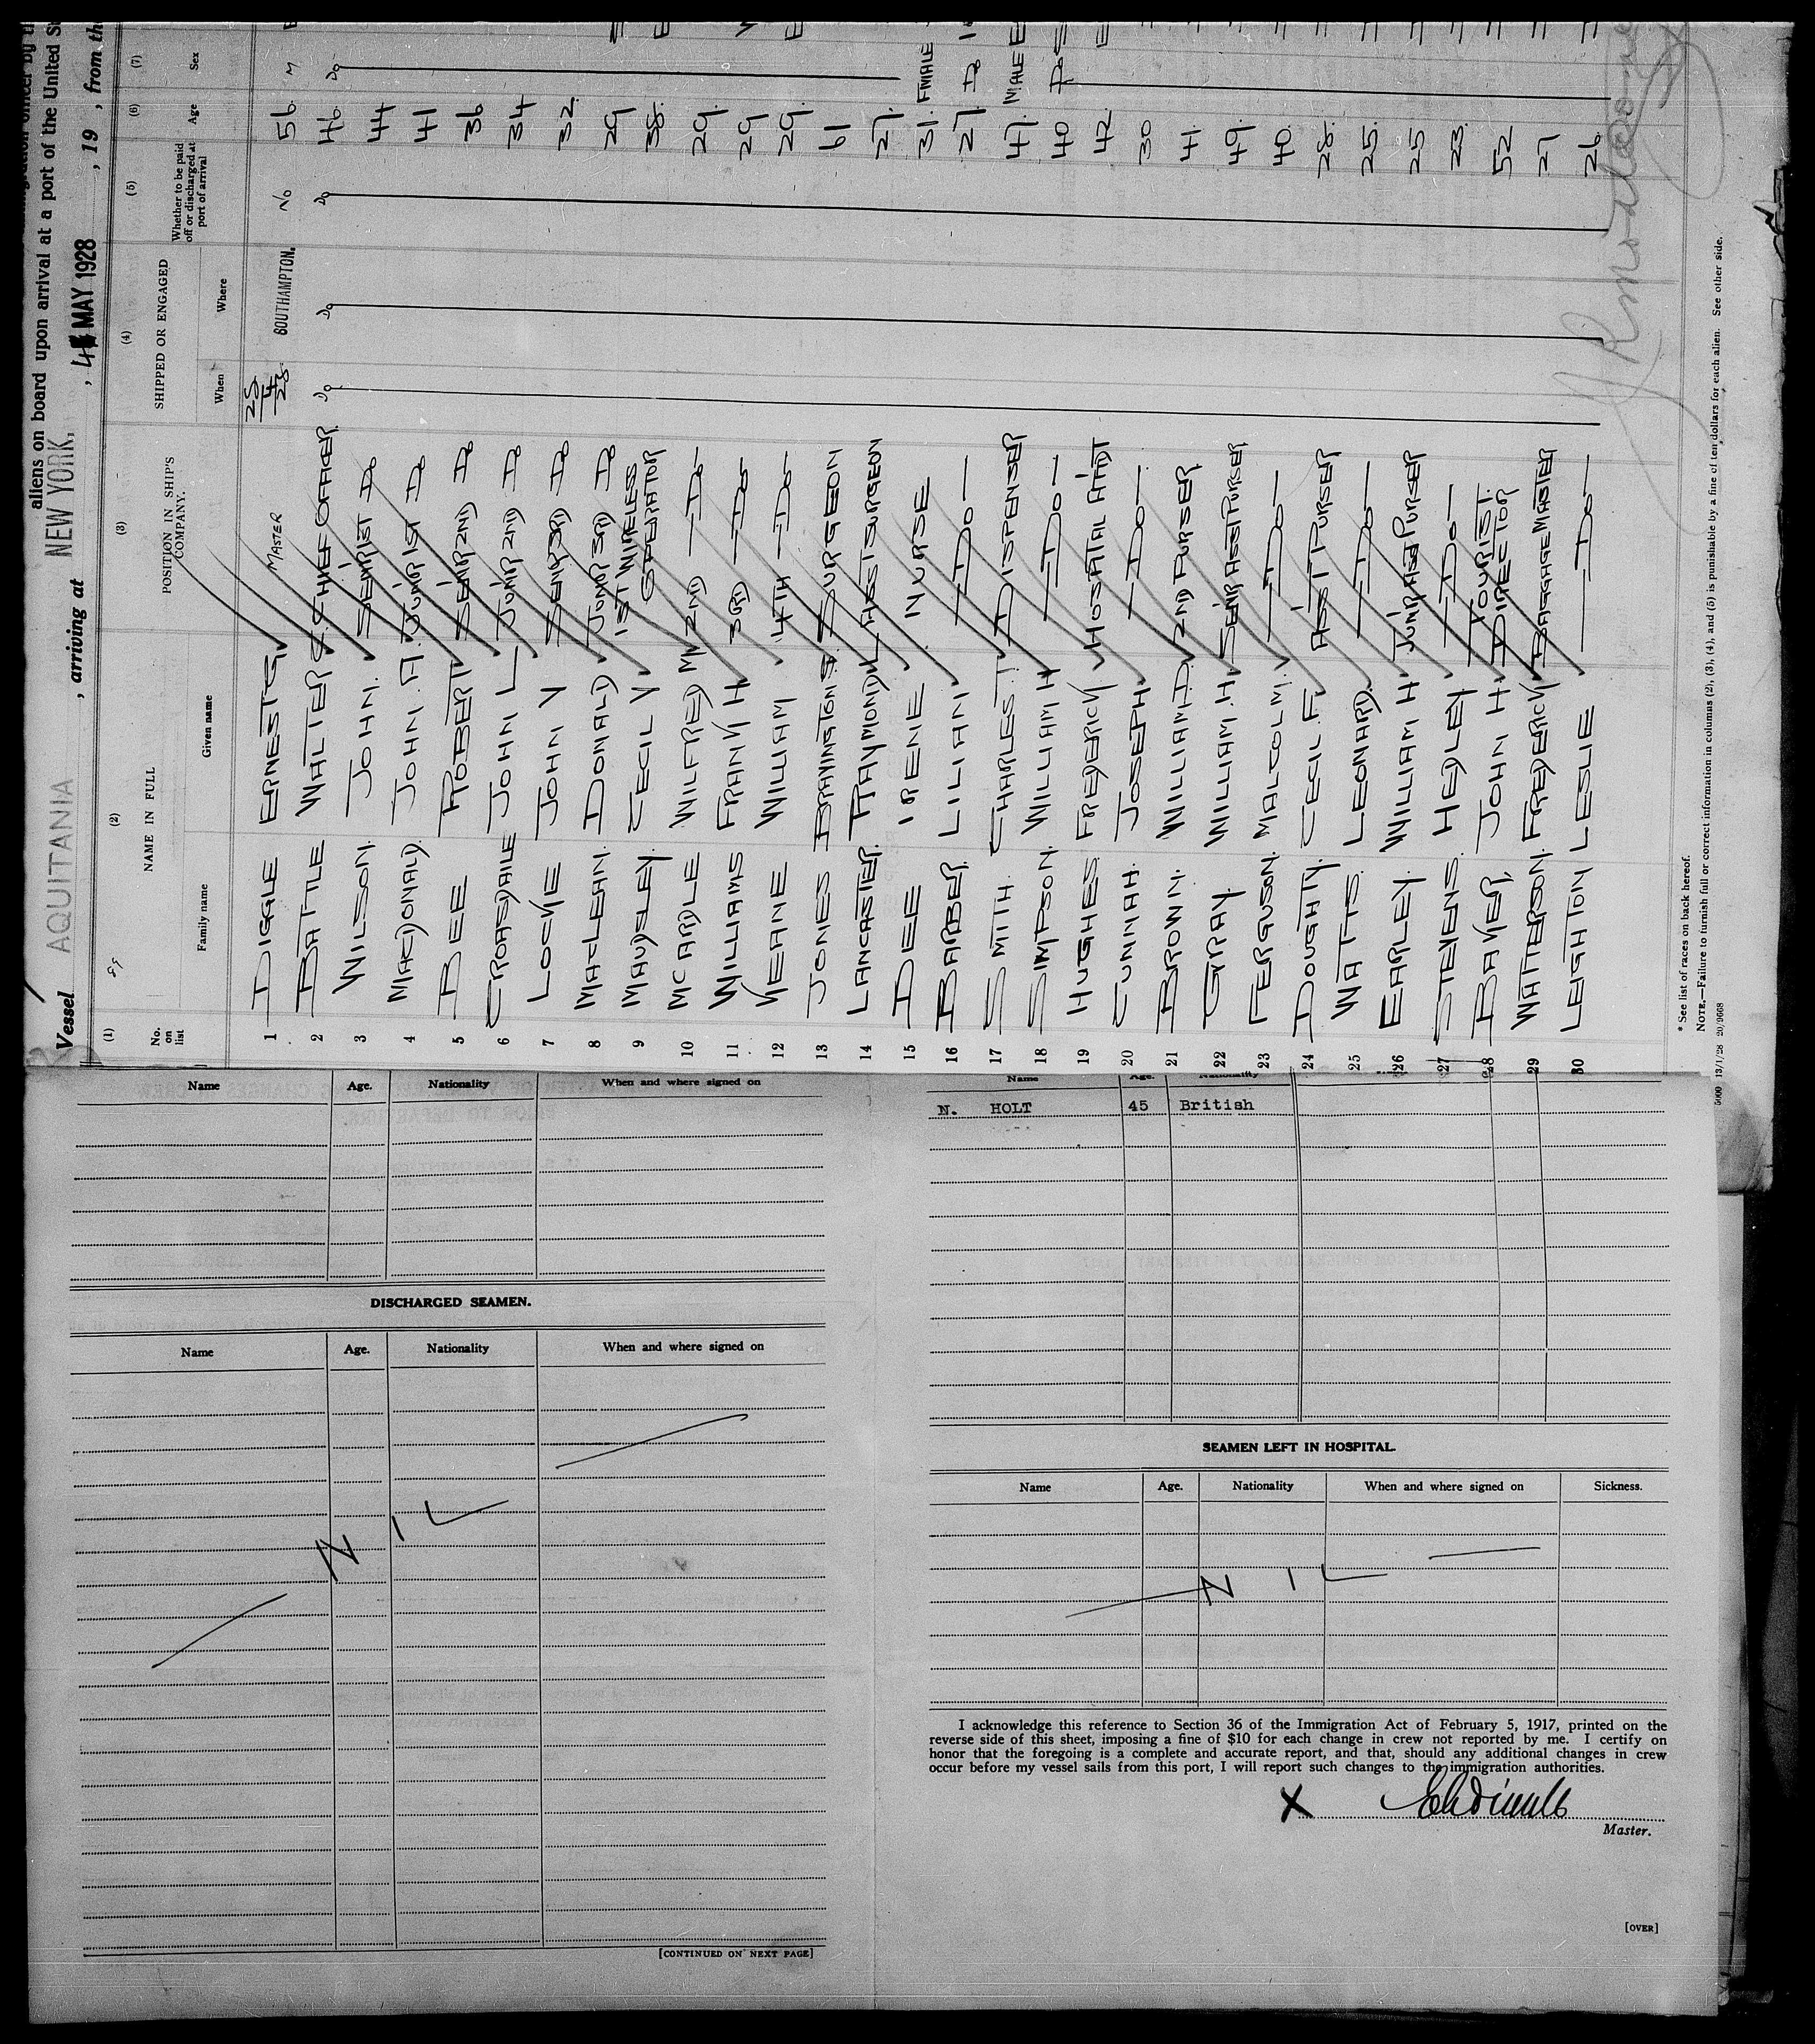 aliens on board upon arrival at a port of the United
Vessel AQUITANIA , arriving at NEW YORK. , 4 MAY 1928 , 19 , from the
(1) (2) (3) (4) (5) (6) (7)
No. on list NAME IN FULL POSITION IN SHIP'S COMPANY. SHIPPED OR ENGAGED Whether to be paid off or discharged at port of arrival Age Sex
Family name Given name When Where
1 DIGGLE ERNEST G. MASTER 25/4/28 SOUTHAMPTON. No 56 M
2 BATTLE WALTER S. CHIEF OFFICER Do Do Do 46 Do
3 WILSON. JOHN. SENR 1ST Do 44
4 MACDONALD. JOHN. A. JUNR 1ST Do 41
5 BEE ROBERT SENR 2ND Do 36
6 CROASDAILE JOHN L JUNR 2ND Do 34
7 LOCKE JOHN K SENR 3RD Do 32
8 MACLEAN. DONALD JUNR 3RD Do 29
9 MAUDSLEY. CECIL K 1ST WIRELESS OPERATOR 38.
10 MCARDLE WILFRED M 2ND Do 29.
11 WILLIAMS FRANK H 3RD Do 29
12 KEANE WILLIAM 4TH Do 29.
13 JONES BRAVINGTON S. SURGEON 61
14 LANCASTER. RAYMOND L ASST SURGEON 27.
15 DEE IRENE NURSE 31. FEMALE
16 BARBER. LILIAN Do 27. Do
17 SMITH. CHARLES T. DISPENSER 47. MALE
18 SIMPSON. WILLIAM H Do 40 Do
19 HUGHES FREDERICK HOSPITAL ATTDT 42.
20 CUNNAH. JOSEPH Do 30
21 BROWN. WILLIAM. D. 2ND PURSER 41.
22 GRAY. WILLIAM. H. SENR ASST PURSER 49.
23 FERGUSON. MALCOLM. Do 40.
24 DOUGHTY. CECIL F. ASST PURSER 28.
25 WATTS. LEONARD. Do 25.
26 EARLEY. WILLIAM H JUNR ASST PURSER 25
27 STEVENS. HEDLEY Do 23.
28 BAKER, JOHN H. TOURIST. DIRECTOR 52
29 WATTERSON. FREDERICK BAGGAGE MASTER 27
30 LEIGHTON LESLIE Do 26
* See list of races on back hereof.
NOTE.—Failure to furnish full or correct information in columns (2), (3), (4), and (5) is punishable by a fine of ten dollars for each alien. See other side.
5000 13/1/28 20/9668
Name Age. Nationality When and where signed on
DISCHARGED SEAMEN.
Name Age. Nationality When and where signed on
NIL
[CONTINUED ON NEXT PAGE]
Name Age. Nationality
N. HOLT 45 British
SEAMEN LEFT IN HOSPITAL.
Name Age. Nationality When and where signed on Sickness.
NIL
I acknowledge this reference to Section 36 of the Immigration Act of February 5, 1917, printed on the
reverse side of this sheet, imposing a fine of $10 for each change in crew not reported by me. I certify on
honor that the foregoing is a complete and accurate report, and that, should any additional changes in crew
occur before my vessel sails from this port, I will report such changes to the immigration authorities.
X
Master.
[OVER]